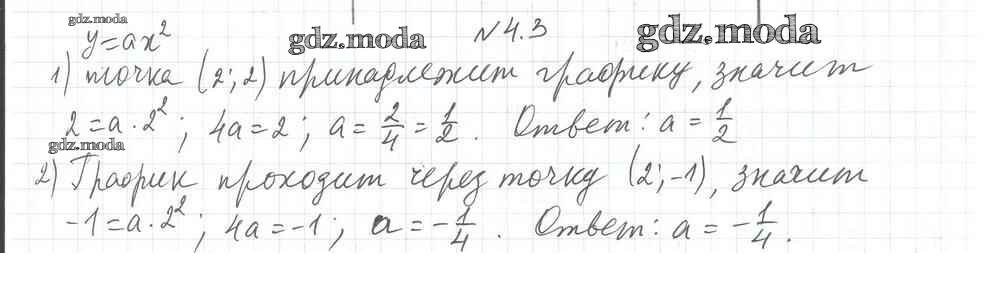 gdz.moda
y=ax²
gdz.moda
№4.3
gdz.moda
1) точка (2; 2) принадлежит графику, значит
2 = a · 2²; 4a = 2; a = 2/4 = 1/2. Ответ: a = 1/2
gdz.moda
2) График проходит через точку (2; -1), значит
-1 = a · 2²; 4a = -1; a = -1/4. Ответ: a = -1/4.